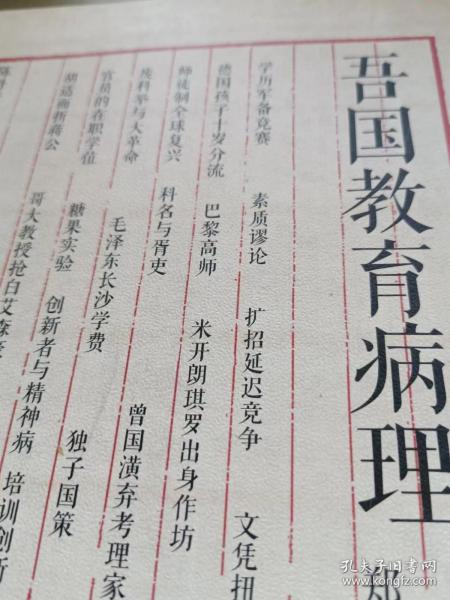 吾国教育病理
郑
学历军备竞赛 素质谬论 扩招延迟竞争 文凭扭
德国孩子十岁分流 巴黎高师 米开朗琪罗出身作坊
师徒制全球复兴 科名与胥吏 曾国潢弃考理家
废科举与大革命 毛泽东长沙学费 独子国策
官员的在职学位 糖果实验 创新者与精神病 培训创新
胡适面折蒋公 哥大教授抢白艾森豪
孔夫子旧书网